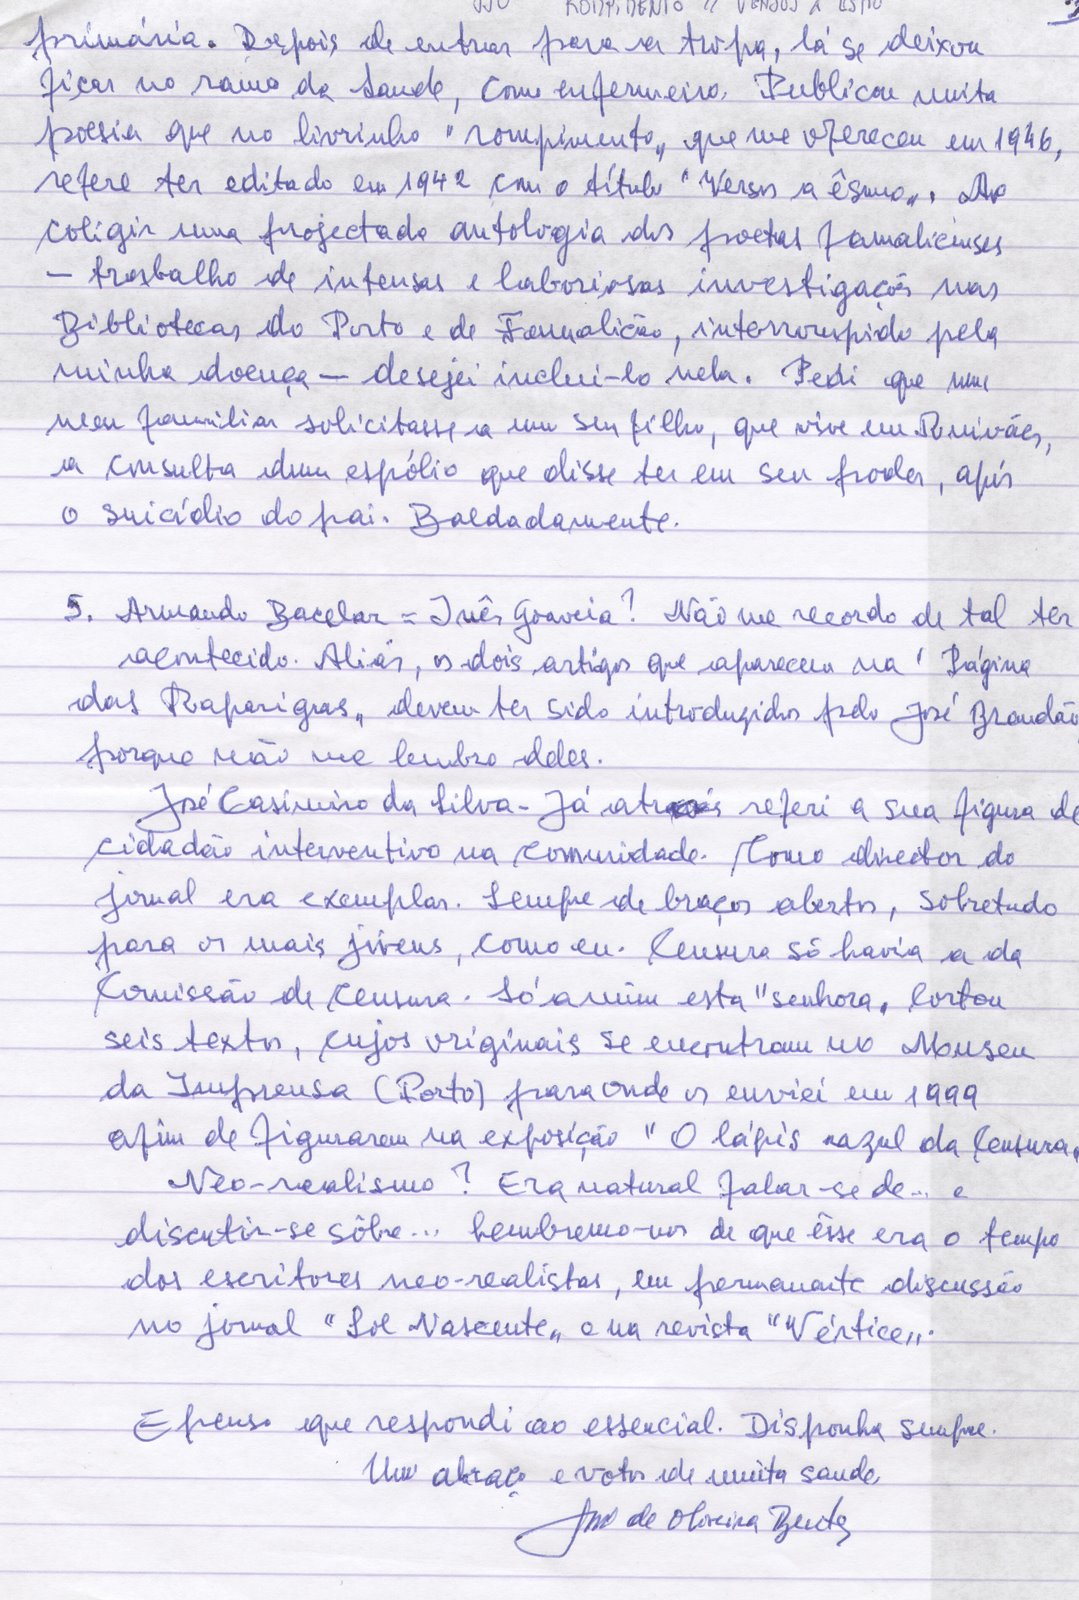 ROMPIMENTO " VERSOS A ESMO
primária. Depois de entrar para a tropa, lá se deixou
ficar no ramo da Saude, como enfermeiro. Publicou muita
poesia que no livrinho "rompimento", que me ofereceu em 1946,
refere ter editado em 1942 com o título "Versos a êsmo". Ao
coligir uma projectada antologia dos poetas famalicenses
— trabalho de intensas e laboriosas investigações nas
Bibliotecas do Porto e de Famalicão, interrompido pela
minha doença — desejei inclui-lo nela. Pedi que um
meu familiar solicitasse a um seu filho, que vive em Ruivães,
a consulta dum espólio que disse ter em seu poder, após
o suicídio do pai. Baldadamente.
5. Armando Bacelar = Inês Gouveia? Não me recordo de tal ter
acontecido. Aliás, os dois artigos que aparecem na "Página
das Raparigas" devem ter sido introduzidos pelo José Brandão,
porque não me lembro deles.
José Casimiro da Silva - Já atrás referi a sua figura de
cidadão interventivo na comunidade. Como director do
jornal era exemplar. Sempre de braços abertos, sobretudo
para os mais jóvens, como eu. Censura só havia a da
Comissão de Censura. Só a mim esta "senhora" cortou
seis textos, cujos originais se encontram no Museu
da Imprensa (Porto) para onde os enviei em 1999
afim de figurarem na exposição "O lápis azul da Censura".
Néo-realismo? Era natural falar-se de... e
discutir-se sôbre... Lembremo-nos de que êsse era o tempo
dos escritores neo-realistas, em permanente discussão
no jornal "Sol Nascente" e na revista "Vértice".
E penso que respondi ao essencial. Disponha sempre.
Um abraço e votos de muita saude,
de Oliveira